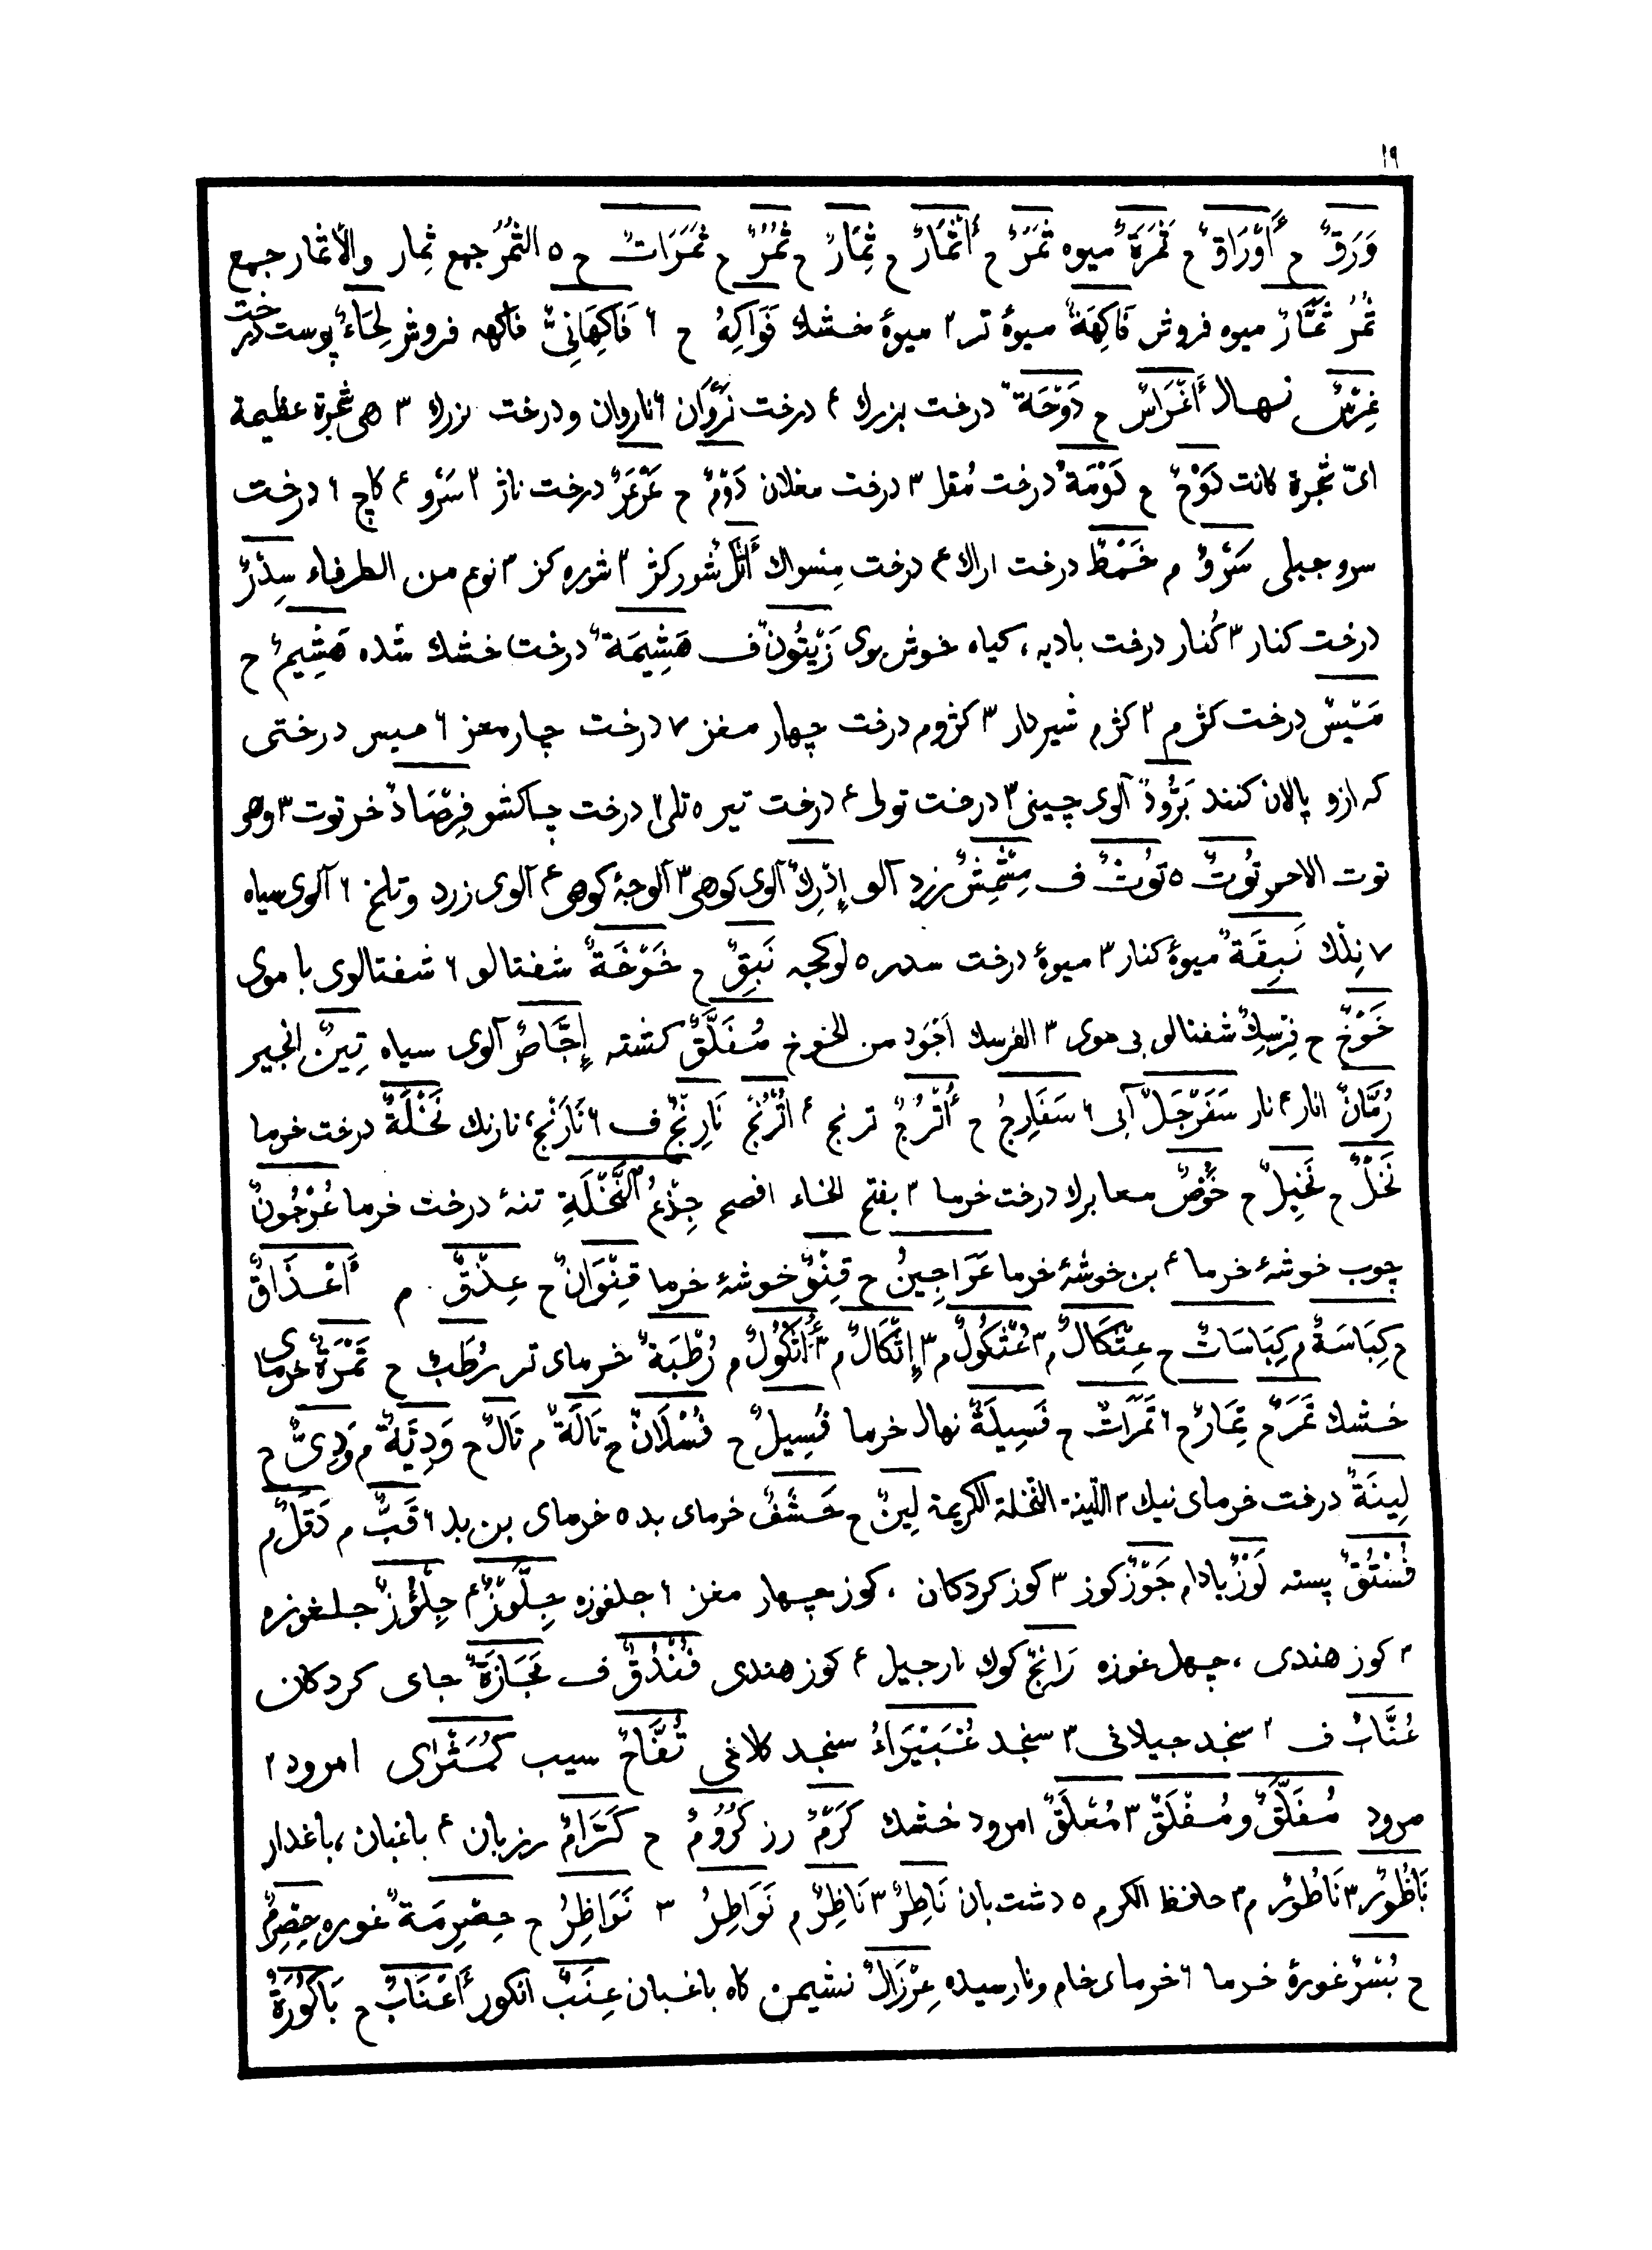 ١٩
وَرَقٌ ح أَوْرَاقٌ ح ثَمَرَةٌ ميوه ثَمَرٌ ح أَثْمَارٌ ح ثِمَارٌ ح ثُمُرٌ ح ثَمَرَاتٌ ح ٥ الثُمُرُ جمع ثِمار والأثمار جمع
ثُمُر ثَمَّارٌ ميوه فروش فَاكِهَةٌ ميوۀ تر ٣ ميوۀ خشك فَوَاكِهُ ح ٦ فَاكِهَانِىٌّ فاكهه فروش لِحَاءٌ پوست درخت
غِرْسٌ نهال أَغْرَاسٌ ح دَوْحَةٌ درخت بزرك ٤ درخت نَرْوَان ٦ ناروان ودرخت بزرك ٣ هى شجرة عظيمة
اىّ شجرة كانت دَوْحٌ ح دَوْمَةٌ درخت مُقل ٣ درخت مغلان دَوْمٌ ح عَرْعَرٌ درخت ناژ ٣ سَرْو ٤ كاج ٦ درخت
سرو جبلى سَرْوٌ م خَمْطٌ درخت اراك ٤ درخت مِسواك أَثْلٌ شور كَز ٣ شوره كز ٣ نوع من الطرفاء سِدْرٌ
درخت كنار ٣ كُنار درخت باديه، كياه خوش بوى زَيْتُونٌ ف هَشِيمَةٌ درخت خشك شده هَشِيمٌ ح
مَيْسٌ درخت كژم ٣ كژم شيردار ٣ كژوم درخت چهار مغز ٧ درخت چار مغز ٦ ميس درختى
كه ازو پالان كنند بَرُّودٌ آلوى چينى ٣ درخت تولى ٤ درخت تير ٥ تلى ٣ درخت چاكشو فِرْصَادٌ خر توت ٣ وهو
توت الاحمر تُوتٌ ٥ تُوثٌ ف مِشْمِشٌ زرد آلو إِدْرِكٌ آلوى كوهى ٣ آلوجۀ كوهى ٤ آلوى زرد وتلخ ٦ آلوى سياه
٧ نِلْك نَبِقَةٌ ميوۀ كنار ٣ ميوۀ درخت سدر ٥ لوكجه نَبِقٌ ح خَوْخَةٌ شفتالو ٦ شفتالوى با موى
خَوْخٌ ح فِرْسِكٌ شفتالو بى موى ٣ الفرسك اَجْوَد من الخوخ مُفَلَّقٌ كشته إِجَّاصٌ آلوى سياه تِينٌ انجير
رُمَّانٌ انار ٤ نار سَفَرْجَلٌ آبى ٦ سَفَارِجُ ح أُتْرُجٌ ترنج ٤ أُتْرُنْجٌ نَارِنْجٌ ف ٦ نَارَنْج، نارنك نَخْلَةٌ درخت خرما
نَخْلٌ ح نَخِيلٌ ح خُوصٌ معا برك درخت خرما ٣ بفتح الخاء افصح جِذْعُ النَّخْلَةِ تنۀ درخت خرما عُرْجُونٌ
چوب خوشۀ خرما ٤ بن خوشۀ خرما عَرَاجِينُ ح قِنْوٌ خوشۀ خرما قِنْوَانٌ ح عِذْقٌ م أَعْذَاقٌ
ح كِبَاسَةٌ م كِبَاسَاتٌ ح عِثْكَالٌ م ٣ عُثْكُولٌ م ٣ إِثْكَالٌ م ٣ أُثْكُولٌ م رُطْبَةٌ خرماى تر رُطَبٌ ح تَمْرَةٌ خرماى
خشك تَمَرٌ ح تِمَارٌ ح ٦ تَمَرَاتٌ ح فَسِيلَةٌ نهال خرما فَسِيلٌ ح فُسْلَانٌ ح تَالَةٌ م تَالٌ ح وَدِيَّةٌ م وَدِىٌّ ح
لِينَةٌ درخت خرماى نيك ٣ اللّينة النّخلة الكريمة لِينٌ ح حَشَفٌ خرماى بد ٥ خرماى بن بد ٦ قَبٌّ م دَقَلٌ م
فُسْتُقٌ پسته لَوْزٌ بادام جَوْزٌ كوز ٣ كوز كردكان، كوز چهار مغز ٦ جلغوزه جِلَّوْزٌ ٤ جِلْوَزٌ جلغوزه
٣ كوز هندى، چهل غوزه رَانِجٌ كوك نارجيل ٤ كوز هندى فُنْدُقٌ ف مَجَازَةٌ جاى كردكان
عُنَّابٌ ف ٣ سنجد جيلانى ٣ سنجد غُبَيْرَاءُ سنجد كلاغى تُفَّاحٌ سيب كُمَّثْرَاى امرود ٣
مرود مُفَلَّقٌ ومُفْلَقٌ ٣ مُعَلَّقٌ امرود خشك كَرْمٌ رز كُرُومٌ ح كَرَّامٌ رزبان ٤ باغبان، باغدار
نَاطُورٌ ٣ نَاظُورٌ م ٣ حافظ الكرم ٥ دشت بان نَاطِرٌ ٣ نَاظِرٌ م نَوَاطِرُ ٣ نَوَاظِرُ ح حِصْرِمَةٌ غوره حِصْرِمٌ
ح بُسْرٌ غورۀ خرما ٦ خرماى خام ونارسيده عِرْزَالٌ نشيمن كاه باغبان عِنَبٌ انكور أَعْنَابٌ ح بَاكُورَةٌ